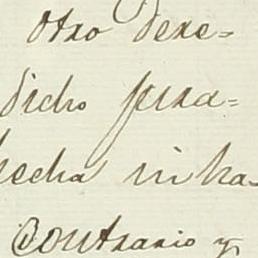 otro dere=
dicho jura=
hecha inha-
Contrario y